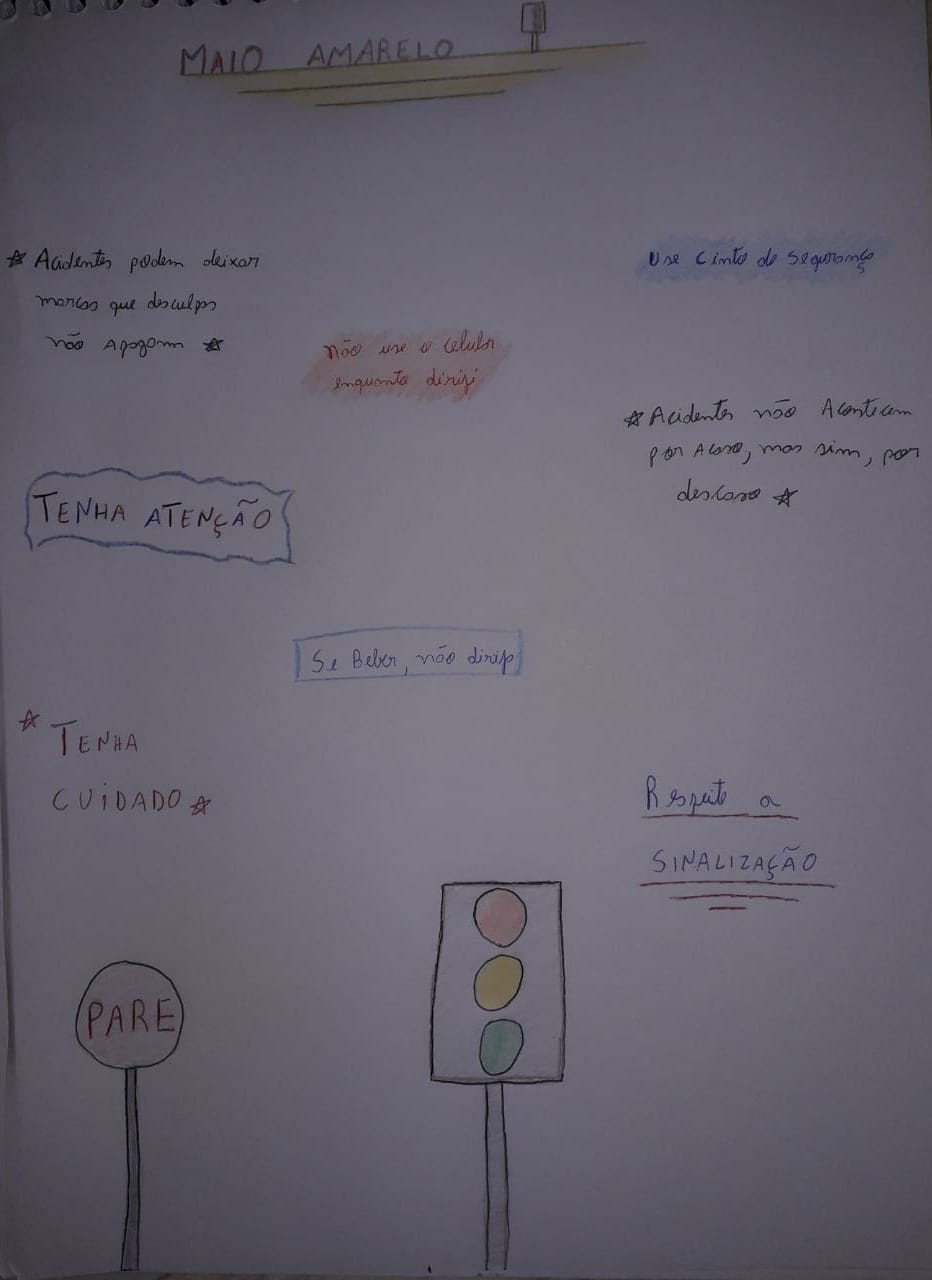 MAIO AMARELO
☆ Acidentes podem deixar
marcas que desculpas
não Apagam ☆
Use Cinto de Segurança
não use o celular
enquanto dirigi
☆ Acidentes não Acontecem
por Acaso, mas sim, por
descaso ☆
TENHA ATENÇÃO
Se Beber, não dirija
☆ TENHA
CUIDADO ☆
Respeite a
SINALIZAÇÃO
PARE